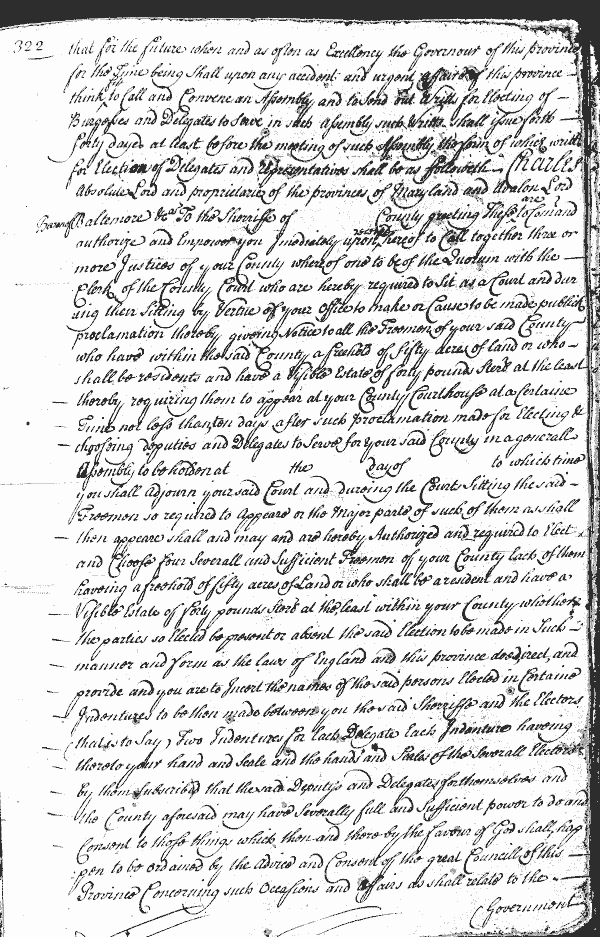 322
that for the future when and as often as Excellency the Governour of this province
for the Time being Shall upon any accident and urgent affaires of this province
think fit to Call and Convene an Assembly and to Send out Writts for Electing of
Burgesses and Delegates to Serve in such Assembly such Writts shall issue forth
forty dayes at Least before the meeting of such Assembly the form of which writt
for Election of Delegates and representatives shall be as followeth Charles
Absolute Lord and proprietarie of the provinces of Maryland and Avalon Lord
Baron of Baltemore &ca To the Sherriffe of County greeting These are to Comand
authorize and Empower you Imediately upon receipt hereof to Call together three or
more Justices of your County where of one to be of the Quorum with the
Clerk of the County Court who are hereby required to Sit as a Court and dur
ing their Sitting by Vertue of your Office to make or Cause to be made publick
proclamation thereby giveing Notice to all the Freemen of your said County
who have within the said County a freehold of fifty acres of land or who
shall be residents and have a Visible Estate of forty pounds Sterl at the least
thereby requireing them to appear at your County Courthouse at a Certaine
Time not less than ten days after such proclamation made for Electing &
choosing deputies and Delegates to Serve for your said County in a generall
Assembly to be holden at the day of to which time
you shall adjourn your said Court and dureing the Courts Sitting the said
Freemen so required to Appeare or the Major parte of such of them as shall
then appeare shall and may and are hereby Authorized and required to Elect
and Choose four Severall and Sufficient Freemen of your County Each of them
haveing a freehold of fifty acres of Land or who shall be a resident and have a
Visible Estate of forty pounds Sterl at the least within your County whether
the parties so Elected be present or absent the said Election to be made in Such
manner and form as the laws of England and this province doe direct, and
provide and you are to Incert the names of the said persons Elected in Certaine
Indentures to be then made between you the said Sherriffe and the Electors
(that is to Say) Two Indentures for Each Delegate Each Indenture haveing
thereto your hand and Seale and the hands and Seales of the Severall Electors
by them Subscribed that the said Deputys and Delegates for themselves and
the County aforesaid may have Severally full and Sufficient power to do and
Consent to those things which then and there by the favour of God shall hap
pen to be ordained by the Advice and Consent of the great Councill of this
Province Concerning such Occasions and affairs as shall relate to the
Government